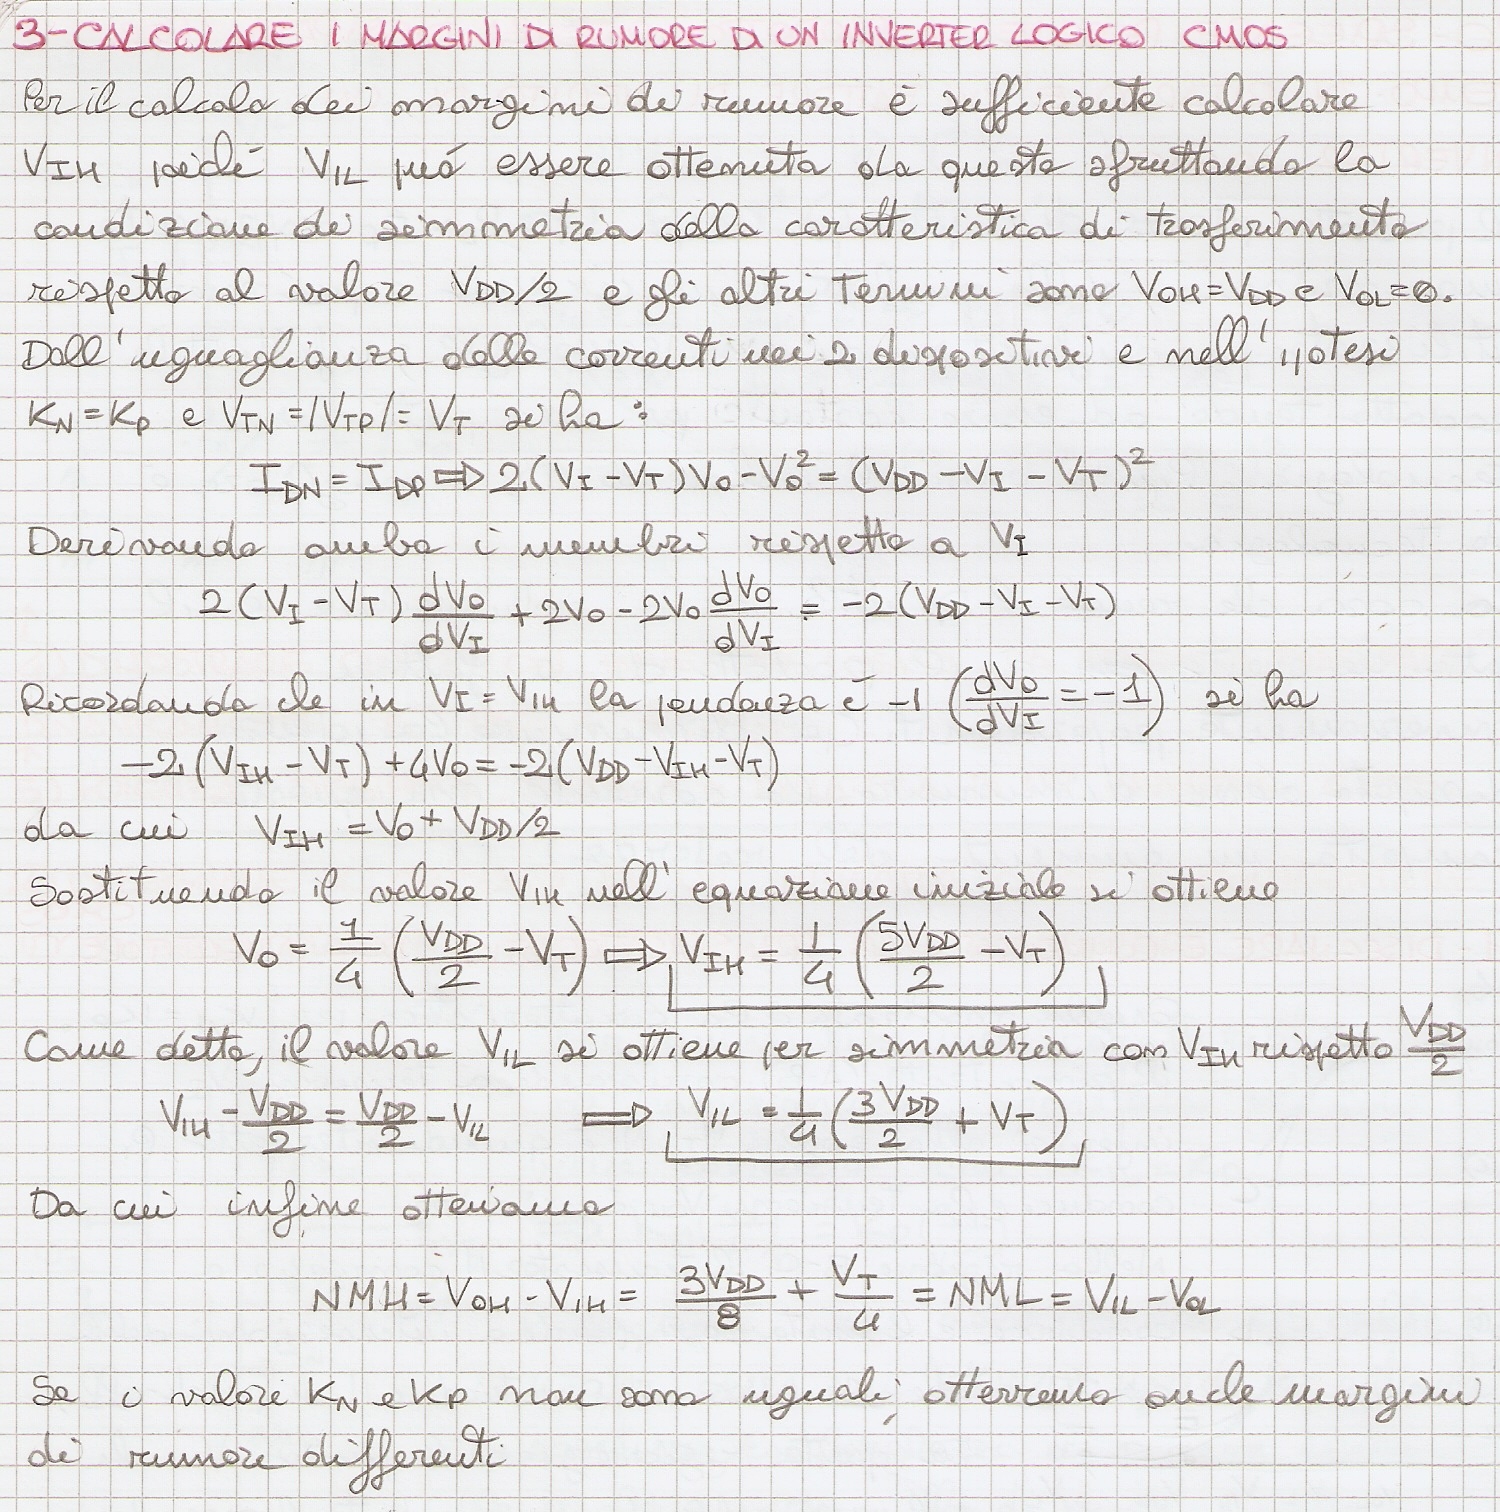 3-CALCOLARE I MARGINI DI RUMORE DI UN INVERTER LOGICO CMOS
Per il calcolo dei margini di rumore è sufficiente calcolare
V_IH poiché V_IL può essere ottenuta da questa sfruttando la
condizione di simmetria della caratteristica di trasferimento
rispetto al valore V_DD/2 e gli altri termini sono V_OH=V_DD e V_OL=0.
Dall'uguaglianza delle correnti nei 2 dispositivi e nell'ipotesi
K_N=K_P e V_TN=|V_TP|=V_T si ha:
I_DN = I_DP ⇒ 2(V_I-V_T)V_O-V_O²=(V_DD-V_I-V_T)²
Derivando ambo i membri rispetto a V_I
2(V_I-V_T) dV_O/dV_I + 2V_O - 2V_O dV_O/dV_I = -2(V_DD-V_I-V_T)
Ricordando che in V_I=V_IH la pendenza è -1 (dV_O/dV_I = -1) si ha
-2(V_IH-V_T)+4V_O=-2(V_DD-V_IH-V_T)
da cui V_IH = V_O + V_DD/2
Sostituendo il valore V_IH nell'equazione iniziale si ottiene
V_O = 1/4 (V_DD/2 - V_T) ⇒ V_IH = 1/4 (5V_DD/2 - V_T)
Come detto, il valore V_IL si ottiene per simmetria con V_IH rispetto V_DD/2
V_IH - V_DD/2 = V_DD/2 - V_IL ⇒ V_IL = 1/4 (3V_DD/2 + V_T)
Da cui infine otteniamo
NMH = V_OH - V_IH = 3V_DD/8 + V_T/4 = NML = V_IL - V_OL
Se i valori K_N e K_P non sono uguali, otterremo anche margini
di rumore differenti